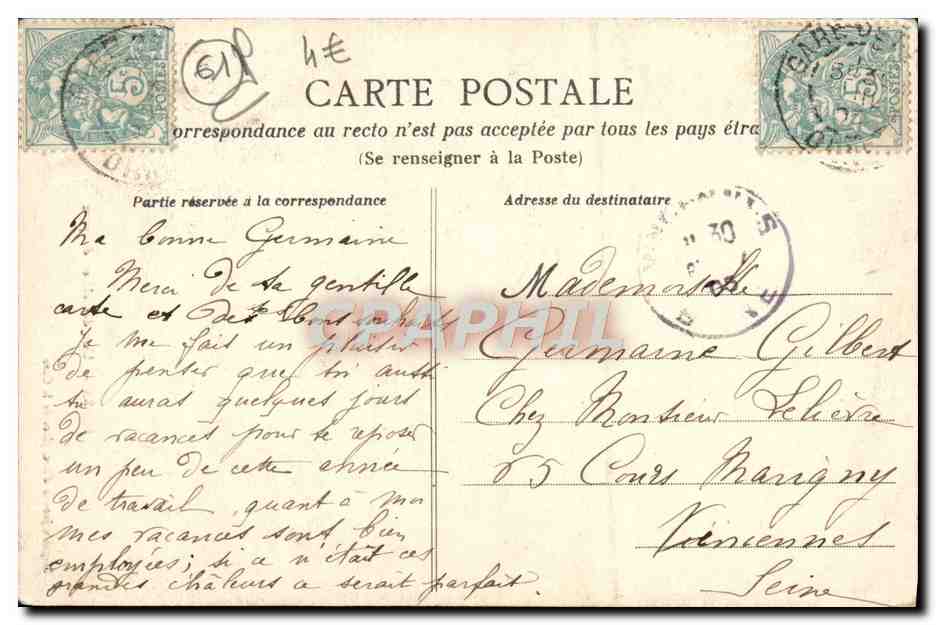 61
4€
CARTE POSTALE
orrespondance au recto n'est pas acceptée par tous les pays étra
(Se renseigner à la Poste)
Partie réservée à la correspondance
Ma bonne Germaine
Merci de ta gentille
carte et des bons souhaits
Ja me fait un plaisir
de penser que toi aussi
tu auras quelques jours
de vacances pour se reposer
un peu de cette année
de travail, quant à Moi
mes vacances sont bien
employées; si ce n'était ces
grandes châleurs ce serait parfait.
Adresse du destinataire
Mademoiselle
Germaine Gilbert
Chez Monsieur Lelièvre
65 Cours Marigny
Vincennes
Seine
CPAPHIL
5c
POSTES
5c
POSTES
GARE DE
30